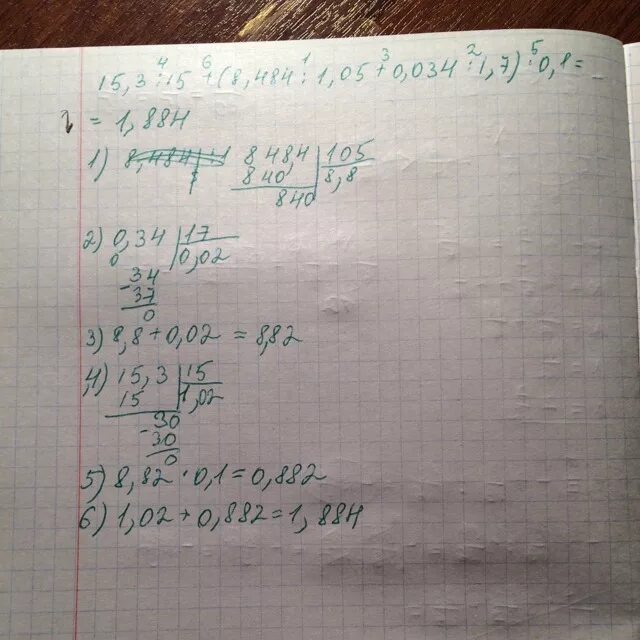 4 6 1 3 2 5
15,3 : 15 + (8,484 : 1,05 + 0,034 : 1,7) · 0,1 =
= 1,884
1) 8484 | 105
840 8,8
840
2) 0,34 | 17
0 0,02
- 34
37
0
3) 8,8 + 0,02 = 8,82
4) 15,3 | 15
15 1,02
- 30
30
0
5) 8,82 · 0,1 = 0,882
6) 1,02 + 0,882 = 1,884